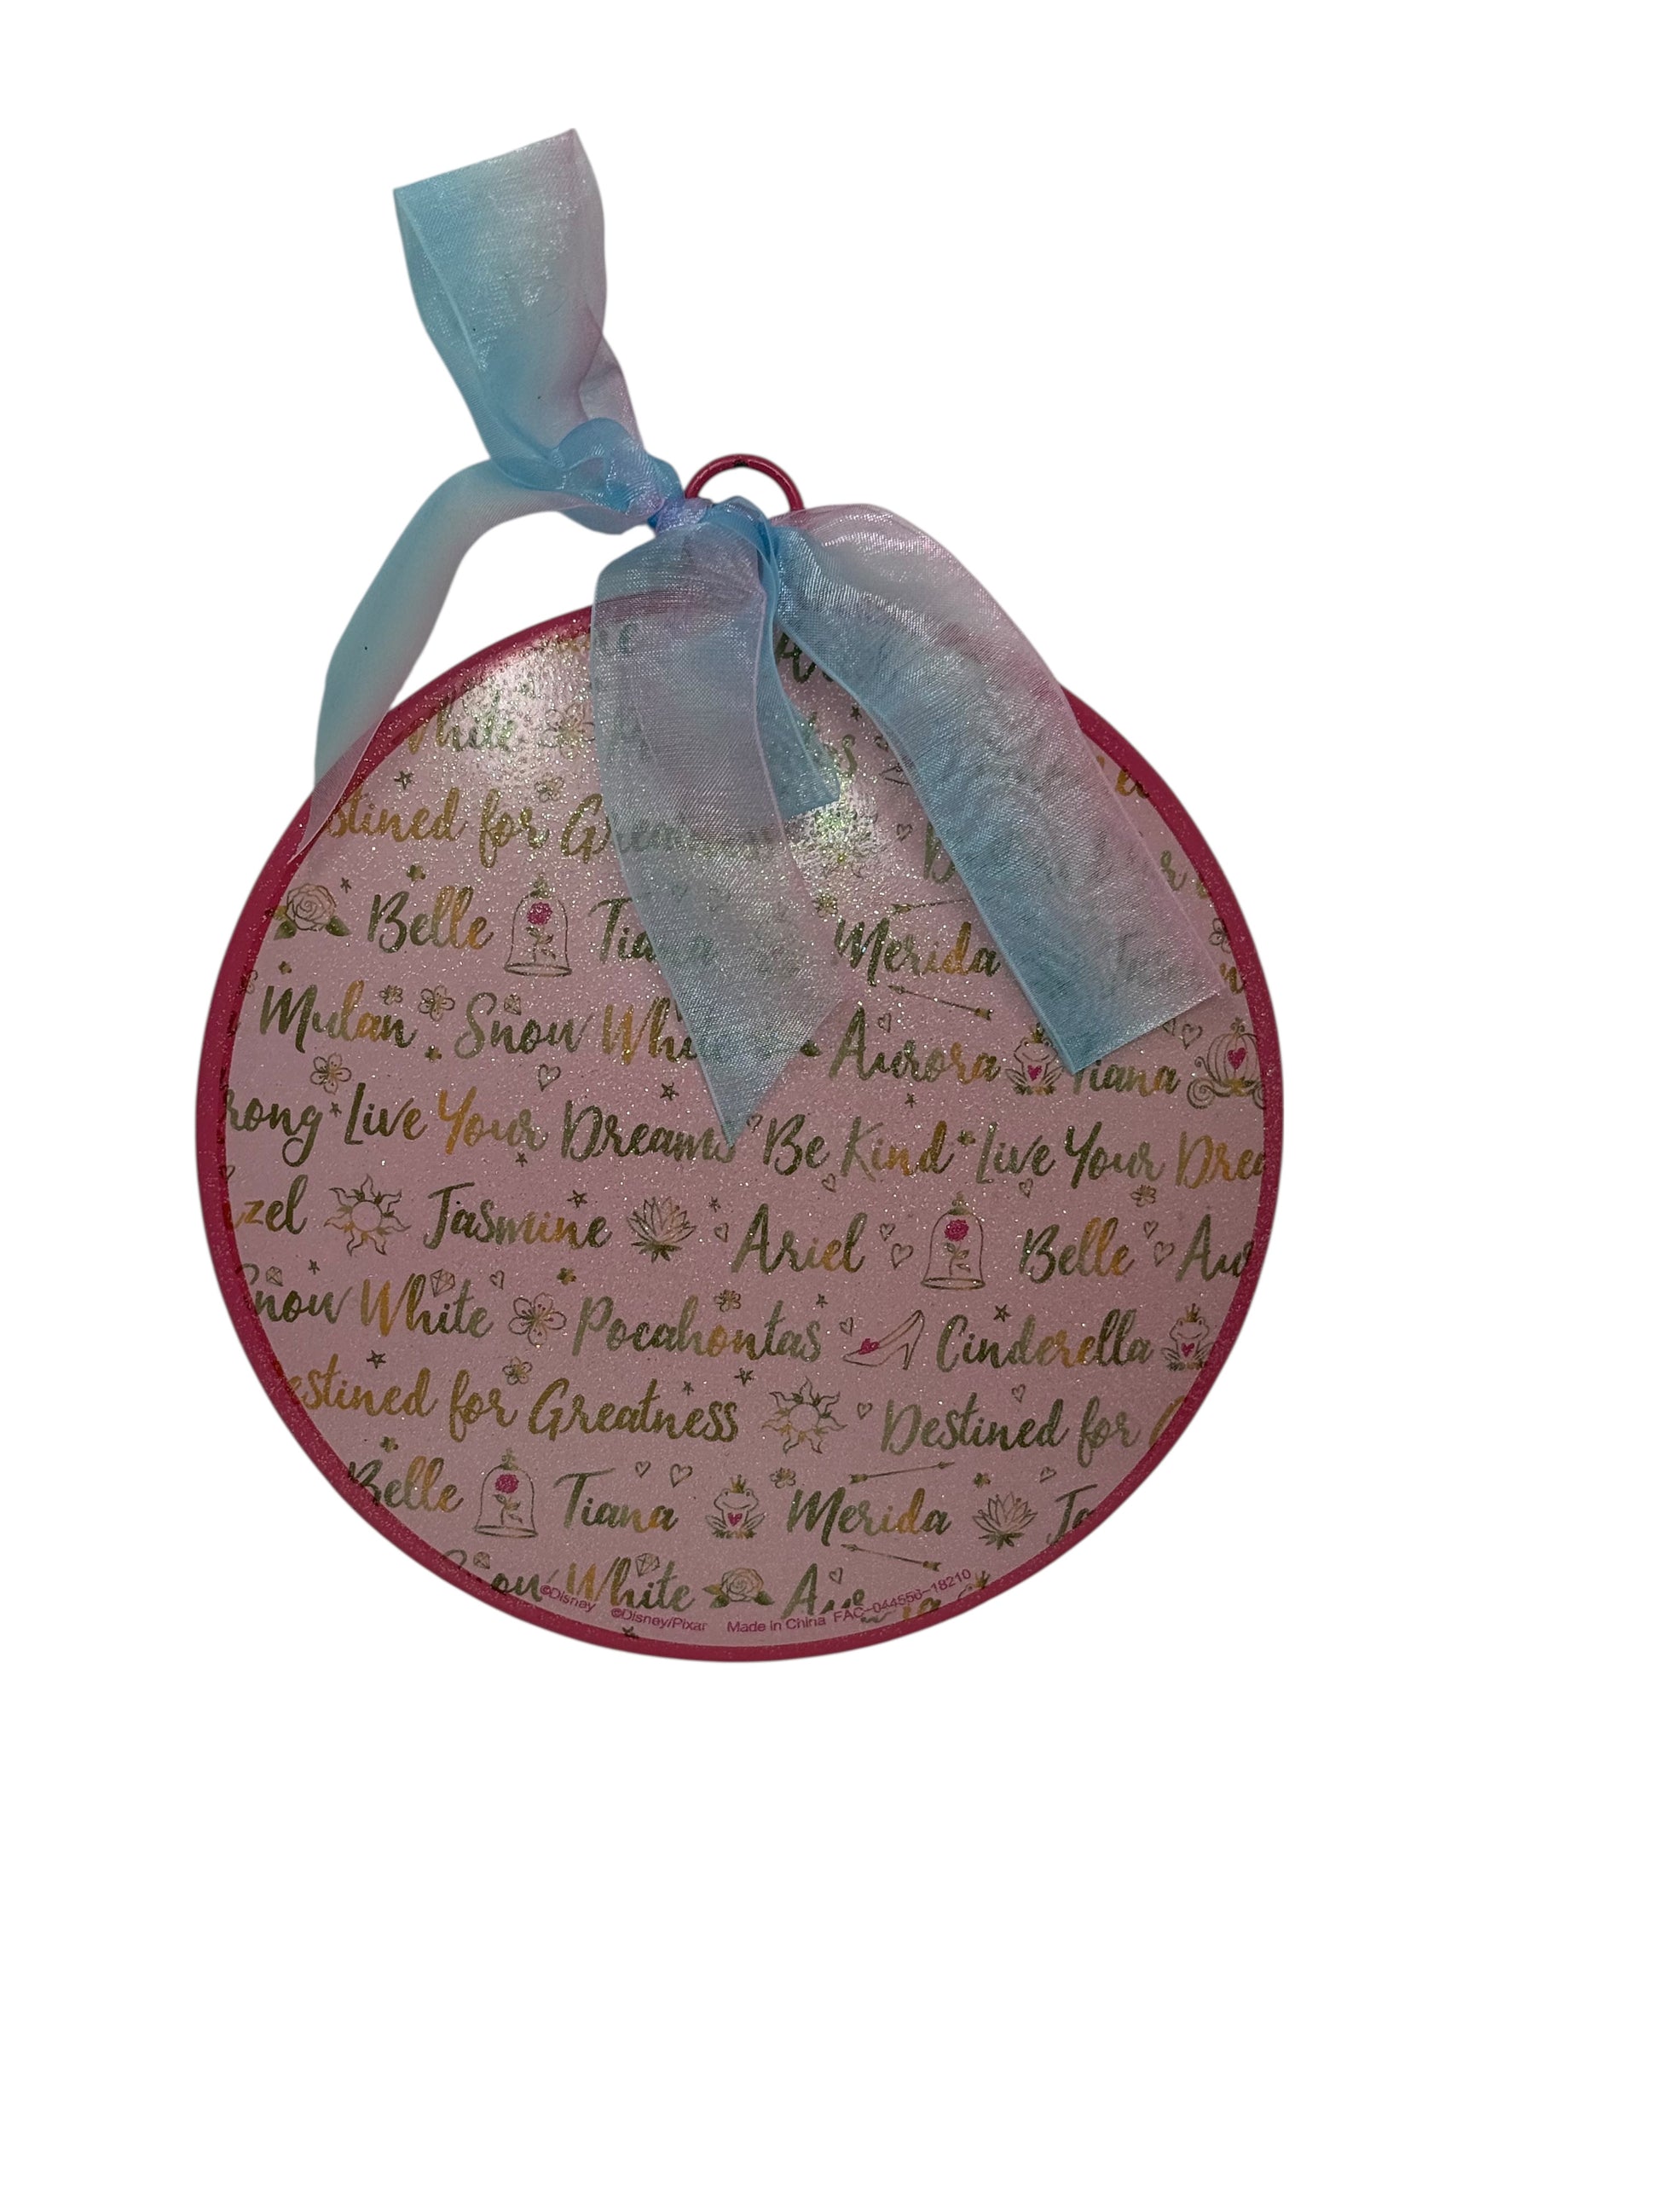 White
stined for Greatness Destined for
Belle Tiana Merida
Mulan Snow Whi Aurora Tiana
rong Live Your Dreams Be Kind Live Your Drea
zel Jasmine Ariel Belle Au
now White Pocahontas Cinderella
estined for Greatness Destined for
Belle Tiana Merida Ja
now White Au
©Disney ©Disney/Pixar Made in China FAC-044556-18210